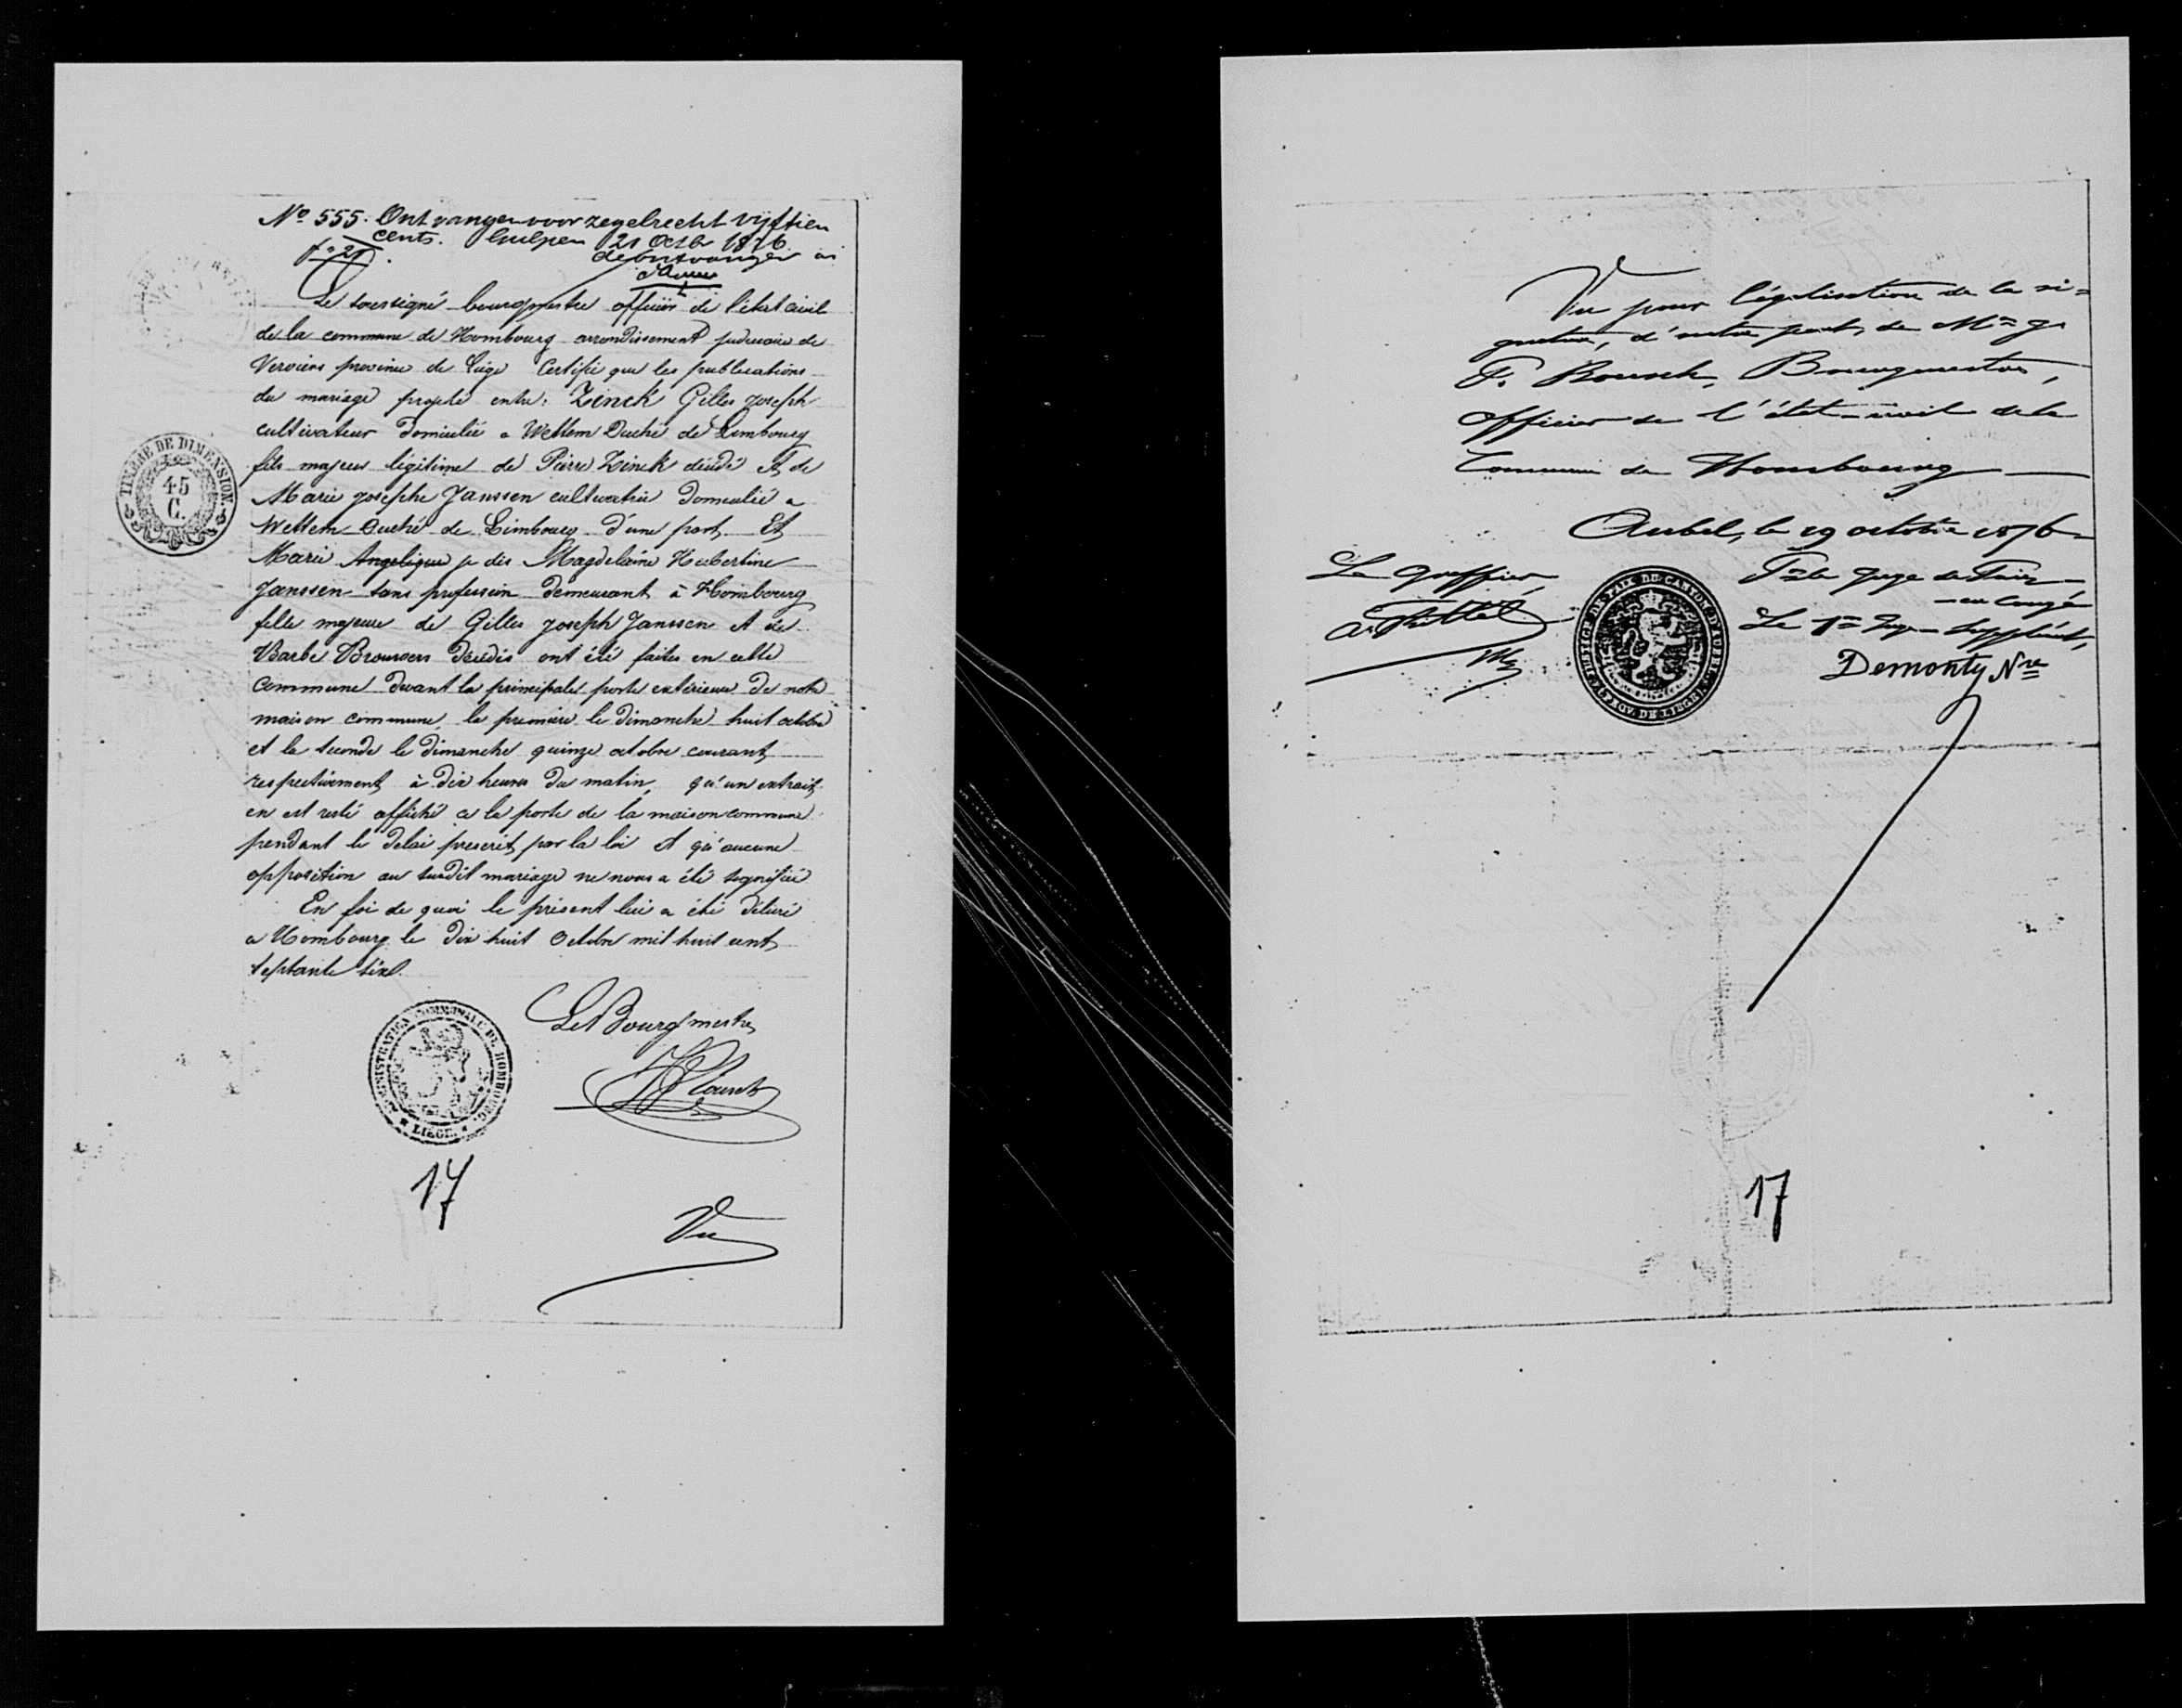 No 555. Ontvangen voor zegelrecht vijftien
cents. Gulpen 21 Octbr 1876.
f 0 21. de ontvanger ai
Le soussigné bourgmestre officier de l'état civil
de la commune de Hombourg arrondissement judiciaire de
Verviers province de Liége Certifie que les publications
du mariage projeté entre: Zinck Gilles Joseph
cultivateur domicilié a Wettem Duché de Limbourg
fils majeur légitime de Pierre Zinck décédé Et de
Marie Josephe Janssen cultivatrice domiciliée a
Wettem Duché de Limbourg d'une part, Et
Marie Angelique je dis Magdelaine Hubertine
Janssen sans profession demeurant à Hombourg
fille majeure de Gilles Joseph Janssen et de
Barbe Brouwers décédés ont été faites en cette
commune devant la principale porte extérieure de notre
maison commune, la première le dimanche huit octobre
et la seconde le dimanche quinze octobre courant
respectivement à dix heures du matin, qu'un extrait
en est resté affiché a la porte de la maison commune
pendant le délai prescrit par la loi et qu'aucune
opposition au susdit mariage ne nous a été signifiée
En foi de quoi le présent lui a été délivré
a Hombourg le dix huit Octobre mil huit cent
septante six.
TIMBRE DE DIMENSION
45
C.
Le Bourgmestre
ADMINISTRATION COMMUNALE DE HOMBOURG.
LIÉGE.
17
Vu
Vu pour légalisation de la si=
gnature, d'autre part, de Mr
F. Rousch, Bourgmestre,
officier de l'état-civil de la
Commune de Hombourg
Aubel, le 19 octobre 1876
Le greffier,
Pr le Juge de Paix
en congé
Le 1er Juge suppléant,
Demonty Nre
JUSTICE DE PAIX DU CANTON D'AUBEL
PROV. DE LIEGE
17